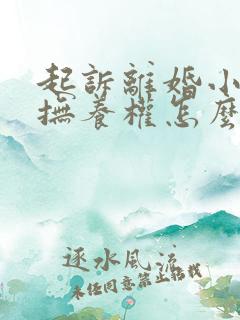 起訴離婚小
撫養權怎麼
逐水風流
未經同意禁止轉載